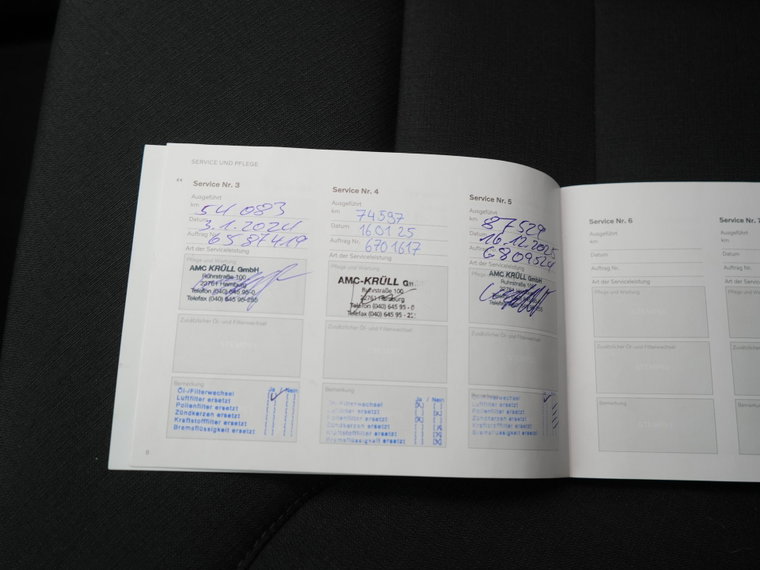 SERVICE UND PFLEGE
Service Nr. 3
Ausgeführt
km 54 083
Datum 3.1.2024
Auftrag Nr. 6587419
Art der Serviceleistung
Pflege und Wartung
AMC KRÜLL GmbH
Ruhrstraße 100
22761 Hamburg
Telefon (040) 645 95-0
Telefax (040) 645 95-
Zusätzlicher Öl- und Filterwechsel
STEMPEL
Bemerkung
Ja / Nein
Öl-/Filterwechsel
Luftfilter ersetzt
Pollenfilter ersetzt
Zündkerzen ersetzt
Kraftstofffilter ersetzt
Bremsflüssigkeit ersetzt
8
Service Nr. 4
Ausgeführt
km 74597
Datum 16 01 25
Auftrag Nr. 6701617
Art der Serviceleistung
Pflege und Wartung
AMC-KRÜLL
Ruhrstraße 100
22761 Hamburg
Telefon (040) 645 95 - 0
Telefax (040) 645 95 -
Zusätzlicher Öl- und Filterwechsel
Bemerkung
Ja / Nein
Filterwechsel
Luftfilter ersetzt
Pollenfilter ersetzt
Zündkerzen ersetzt
Kraftstofffilter ersetzt
Bremsflüssigkeit ersetzt
Service Nr. 5
Ausgeführt
km 87529
Datum 16.12.2025
6809524
Art der Serviceleistung
Pflege und
AMC-KRÜLL GmbH
Ruhrstraße 100
Zusätzlicher Öl- und Filterwechsel
STEMPEL
Luftfilter ersetzt
Pollenfilter ersetzt
Zündkerzen ersetzt
Kraftstofffilter ersetzt
Bremsflüssigkeit ersetzt
Service Nr. 6
Ausgeführt
km
Datum
Auftrag Nr.
Art der Serviceleistung
Pflege und Wartung
STEMPEL
Zusätzlicher Öl- und Filterwechsel
STEMPEL
Bemerkung
Service Nr. 7
Ausgeführt
km
Datum
Auftrag Nr.